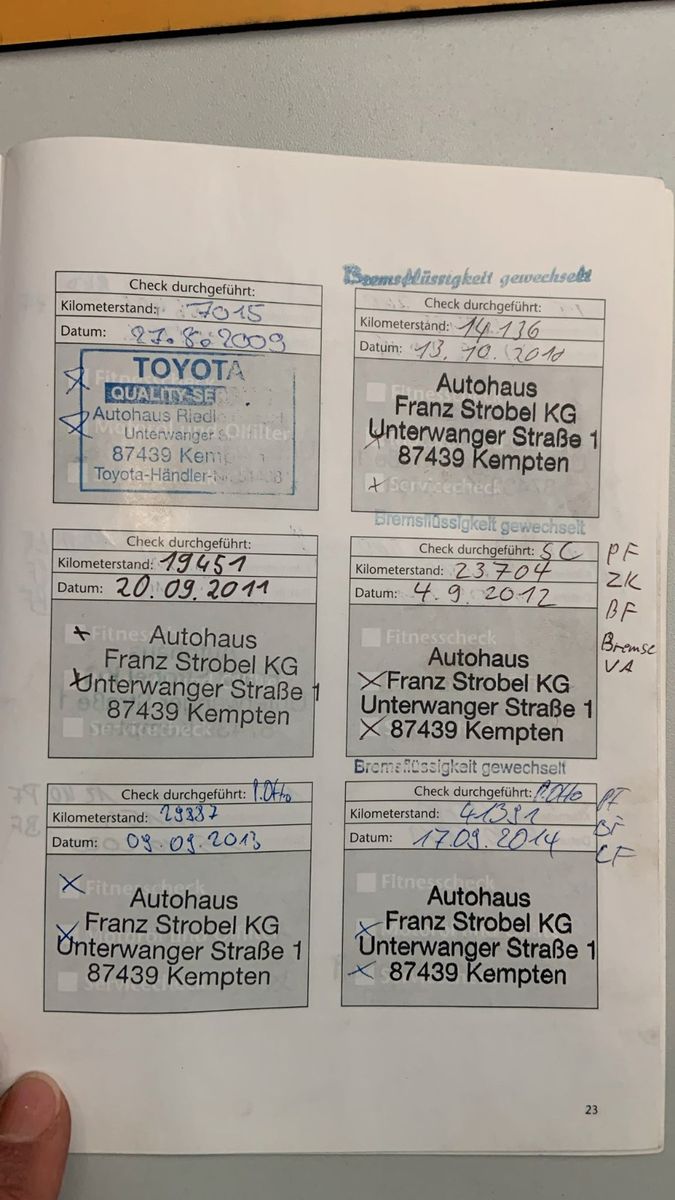 Check durchgeführt:
Kilometerstand: 7015
Datum: 27.8.2009
TOYOTA
QUALITY-SER
Autohaus Riedl
Unterwanger
87439 Kem
Toyota-Händler-
Bremsflüssigkeit gewechselt
Check durchgeführt:
Kilometerstand: 14.136
Datum: 13.10.2010
Autohaus
Franz Strobel KG
Unterwanger Straße 1
87439 Kempten
Servicecheck
Check durchgeführt:
Kilometerstand: 19451
Datum: 20.09.2011
Fitnesscheck
Autohaus
Franz Strobel KG
Unterwanger Straße 1
87439 Kempten
Servicecheck
Bremsflüssigkeit gewechselt
Check durchgeführt: SC
Kilometerstand: 23704
Datum: 4.9.2012
Fitnesscheck
Autohaus
Franz Strobel KG
Unterwanger Straße 1
87439 Kempten
PF
ZK
BF
Bremse
VA
Check durchgeführt: P.Otto
Kilometerstand: 29887
Datum: 09.09.2013
Fitnesscheck
Autohaus
Franz Strobel KG
Unterwanger Straße 1
87439 Kempten
Servicecheck
Bremsflüssigkeit gewechselt
Check durchgeführt: P.Otto
Kilometerstand: 41391
Datum: 17.09.2014
Fitnesscheck
Autohaus
Franz Strobel KG
Unterwanger Straße 1
87439 Kempten
PF
BF
LF
23